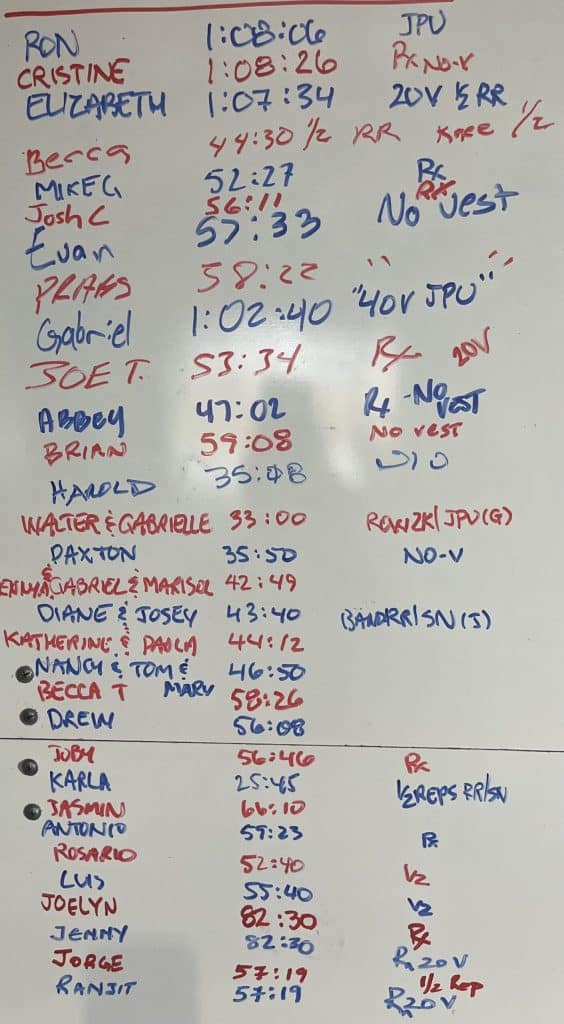 RON 1:08:06 JPU
CRISTINE 1:08:26 Rx NO-V
ELIZABETH 1:07:34 20V 1/2 RR
Becca 44:30 1/2 RR 1/2
MIKE G 52:27 Rx
Josh C 56:11 Rx
Evan 57:33 No vest
58:22 " "
Gabriel 1:02:40 "40V JPU"
JOE T. 53:34 Rx 20V
ABBEY 47:02 Rx -No VEST
BRIAN 59:08 No vest
HAROLD
WALTER & GABRIELLE 33:00 ROW2K/JPU(G)
PAXTON 35:50 NO-V
& GABRIEL & MARISOL 42:49
DIANE & JOSEY 43:40 BANDRR/SN(J)
KATHERINE & PAOLA 44:12
NANCY & TOM & MARV 46:50
BECCA T 58:26
DREW 56:08
JOBY 56:46 Rx
KARLA 25:45 1/2 REPS RR/SN
JASMIN 66:10
ANTONIO 59:23 Rx
ROSARIO 52:40 1/2
LUIS 55:40 1/2
JOELYN 82:30 Rx
JENNY 82:30 Rx 20V
JORGE 57:19 1/2 Rep
RANJIT 57:19 Rx 20V